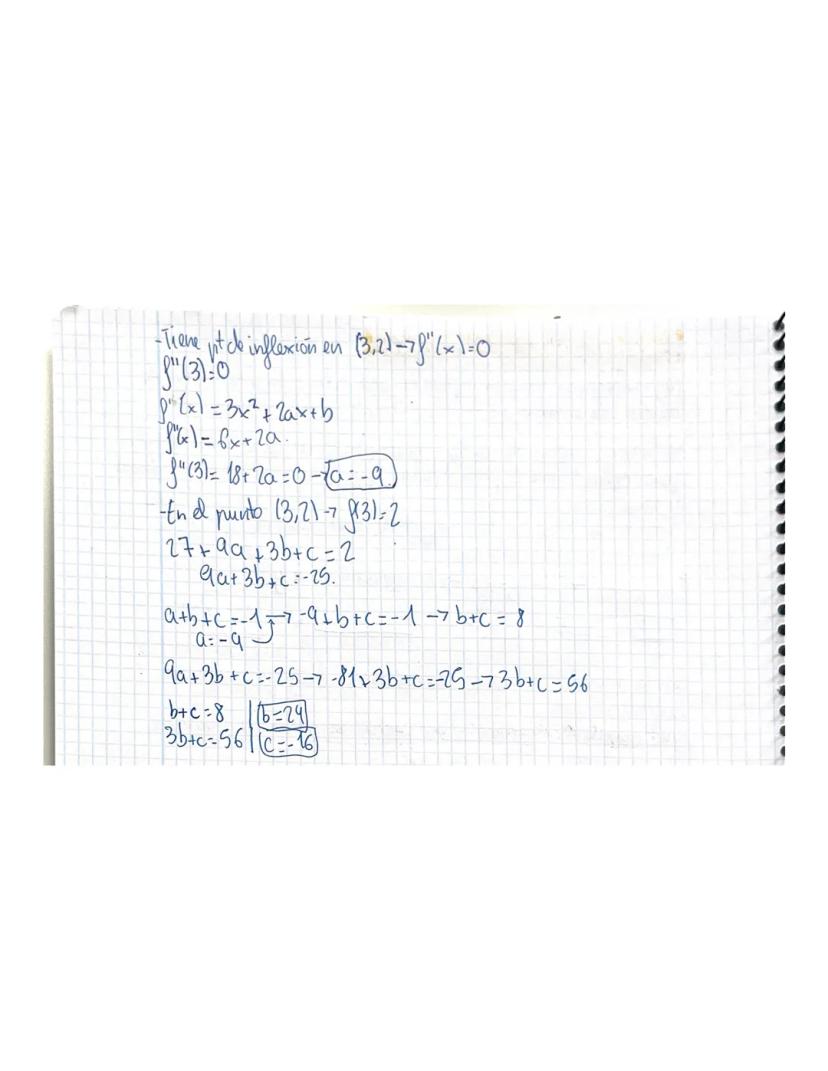 -Tiene pt de inflexión en (3,2) → f''(x)=0
f''(3)=0
f'(x) = 3x² + 2ax + b
f''(x) = 6x + 2a.
f''(3) = 18 + 2a = 0 → a = -9
-En el punto (3,2) → f(3)=2
27 + 9a + 3b + c = 2
9a + 3b + c = -25.
a+b+c = -1 → -9+b+c = -1 → b+c = 8
a = -9
9a + 3b + c = -25 → -81 + 3b + c = -25 → 3b+c = 56
b+c = 8 | b = 24
3b+c = 56 | c = -16